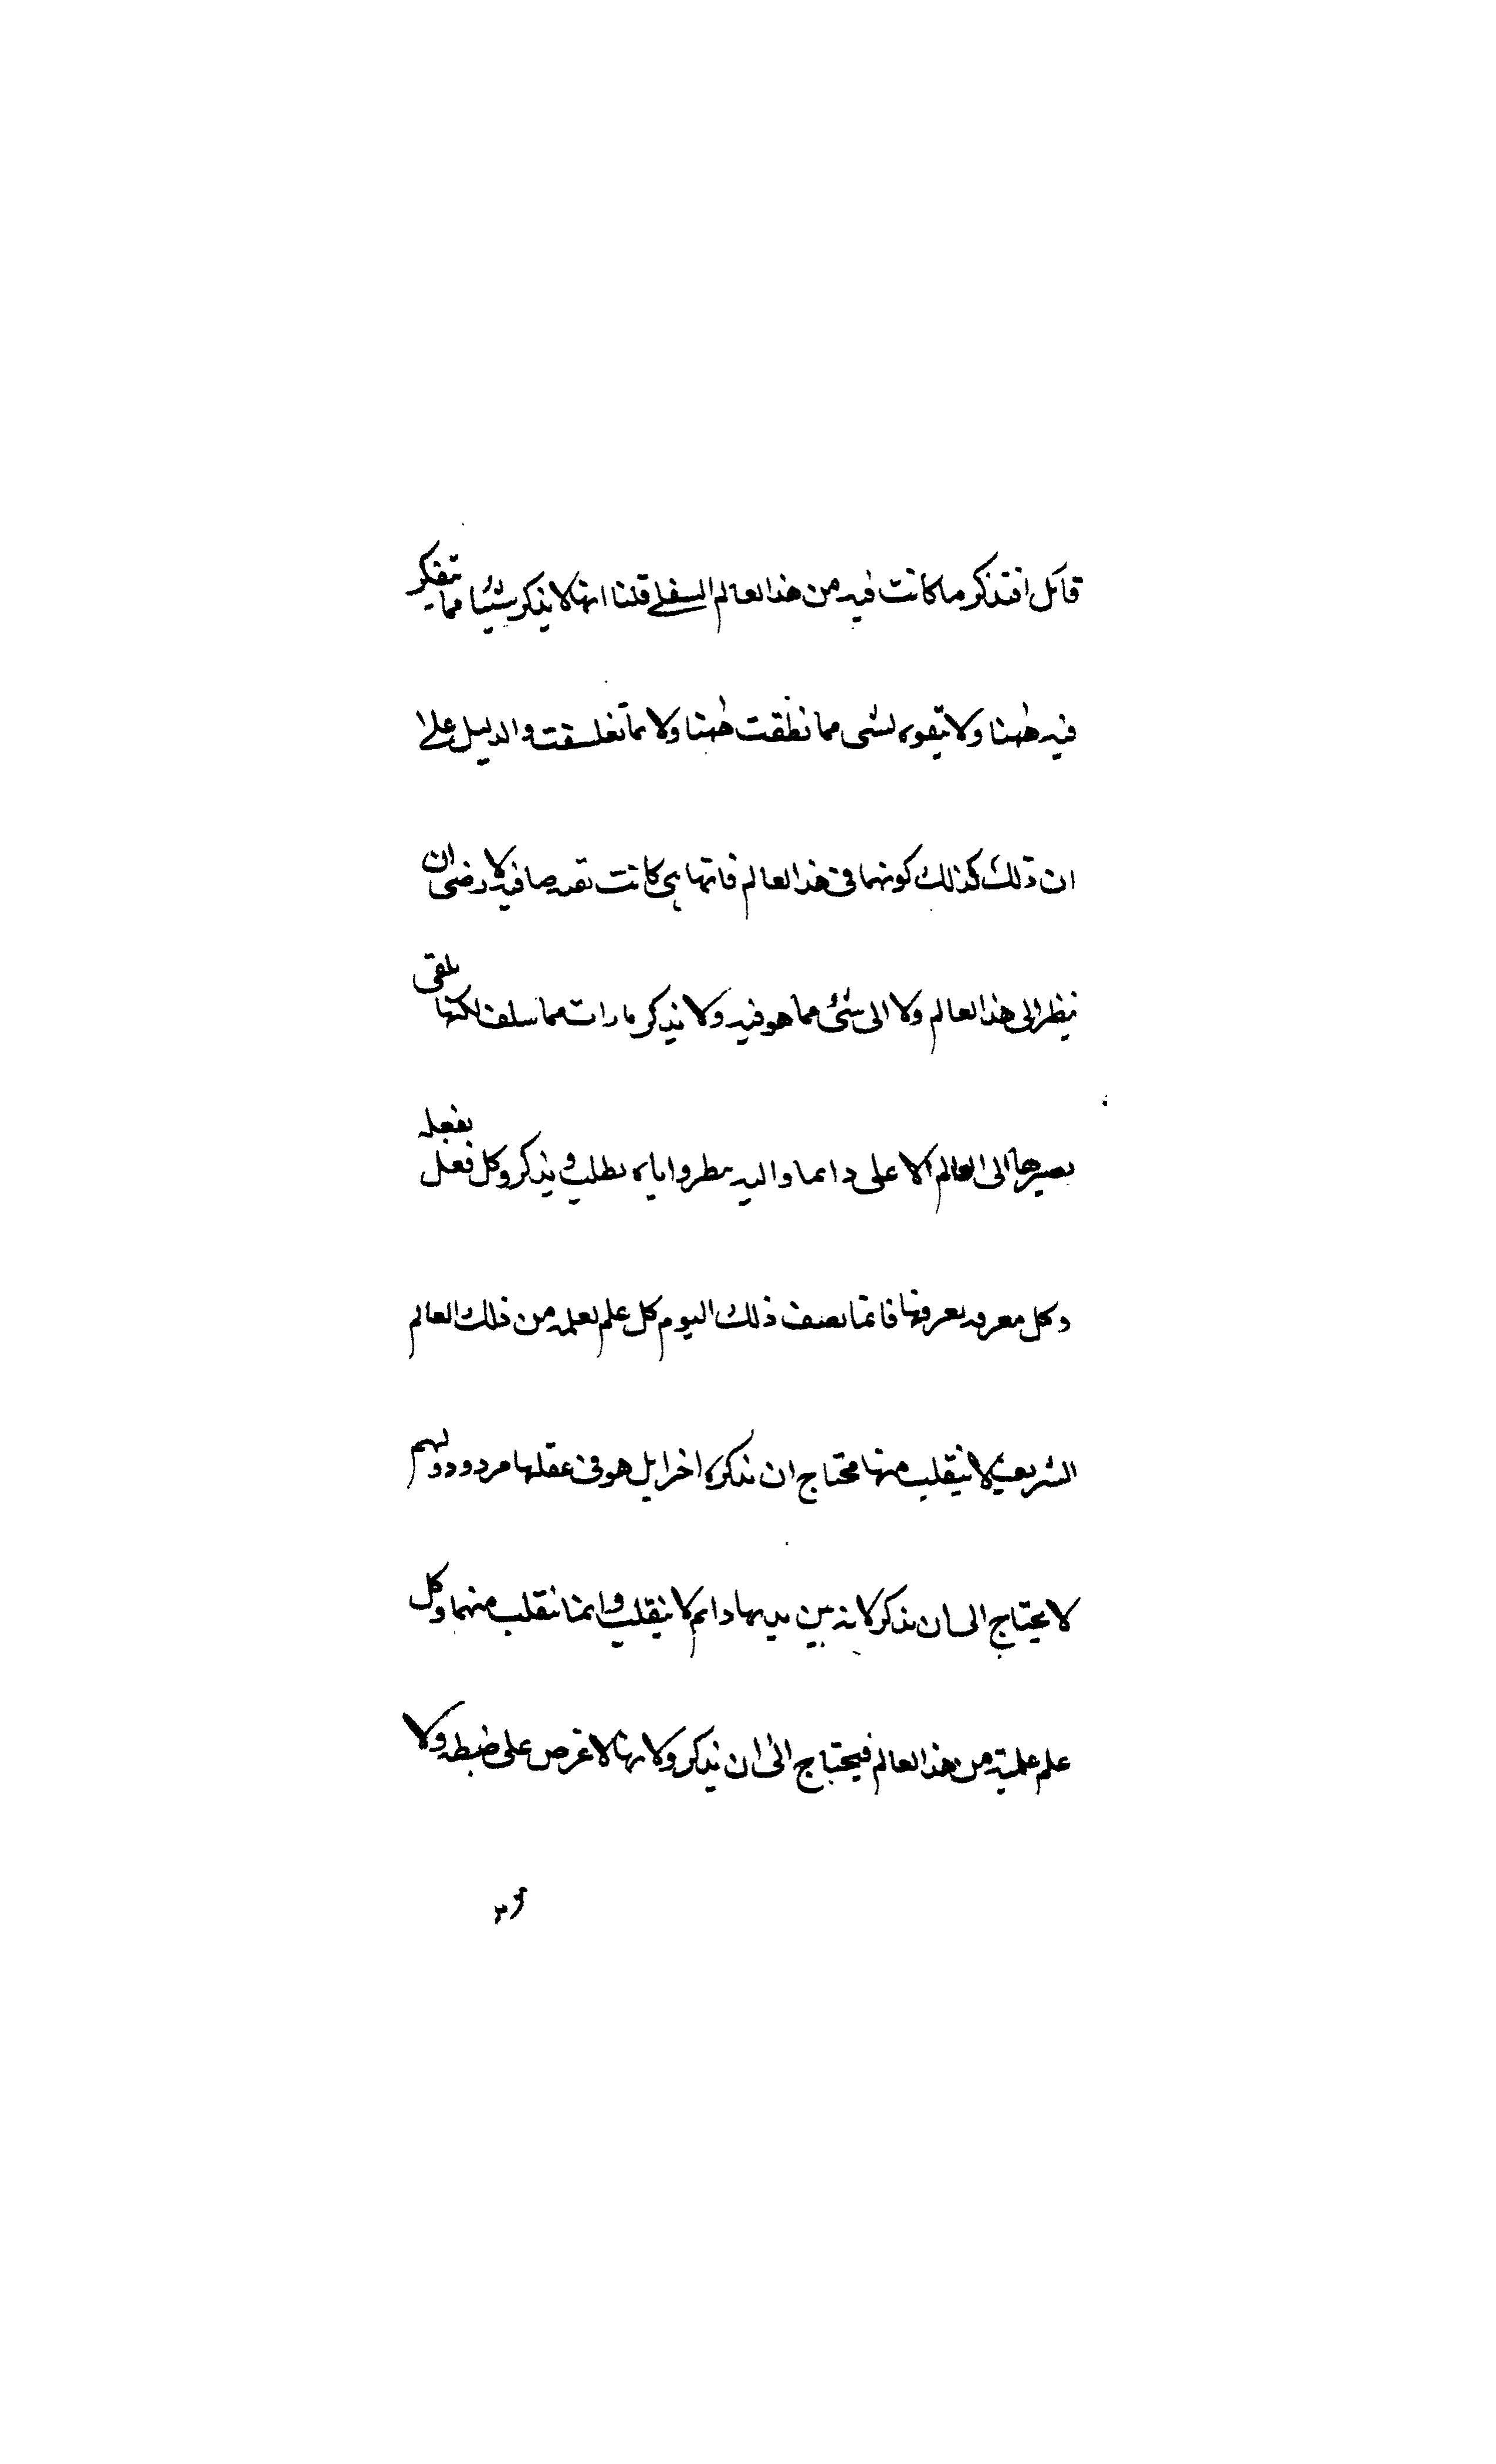 قائل افتذكر ما كانت فيه من هذا العالم السفلى قلنا انها لا يذكر شيئا مما يتفكر
فيه ههنا ولا يتفوه بشى مما نطقت ههنا ولا بما تفلسفت والدليل على
ان ذلك كذلك كونها فى هذا العالم فانها هى كانت نقيه صافيه لا رضى ان
ينظر الى هذا العالم ولا الى شئ مما هو فيه ولا يذكر ما رات مما سلف لكنها يلقى
بصيرها الى العالم الاعلى دايما واليه ينظر واياه يطلب ويذكر وكل فعل يفعله
وكل معرفه يعرفها فانما يصف ذلك اليوم كل علم يعلمه من ذلك العالم
الشريف لا ينقلب منها محتاج ان يذكره اخرا بل هو فى عقلها مردود ولهم
لا يحتاج الى ان يذكر لانه بين يديها دايم لا ينقلب وانما ينقلب منهما وكل
علم علمته من هذا العالم فيحتاج الى ان يذكر ولانها لا غرض على ضبطه ولا